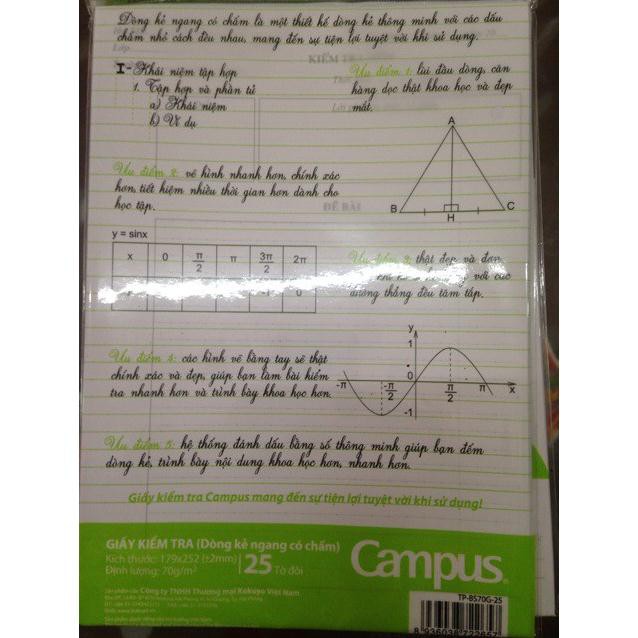 Dòng kẻ ngang có chấm là một thiết kế dòng kẻ thông minh với các dấu
chấm nhỏ cách đều nhau, mang đến sự tiện lợi tuyệt vời khi sử dụng.
Lớp
KIỂM
I- Khái niệm tập hợp
1. Tập hợp và phần tử
a) Khái niệm
b) Ví dụ
Ưu điểm 1: lùi đầu dòng, căn
hàng dọc thật khoa học và đẹp
mắt.
A
B
H
C
Ưu điểm 2: vẽ hình nhanh hơn, chính xác
hơn, tiết kiệm nhiều thời gian hơn dành cho
học tập.
ĐỀ BÀI
y = sinx
x 0 π/2 π 3π/2 2π
-1 0
Ưu điểm 3: thật đẹp và đơn
với các
đường thẳng đều tăm tắp.
Ưu điểm 4: các hình vẽ bằng tay sẽ thật
chính xác và đẹp, giúp bạn làm bài kiểm
tra nhanh hơn và trình bày khoa học hơn.
y
1
0
-π -π/2 π/2 π x
-1
Ưu điểm 5: hệ thống đánh dấu bằng số thông minh giúp bạn đếm
dòng kẻ, trình bày nội dung khoa học hơn, nhanh hơn.
Giấy kiểm tra Campus mang đến sự tiện lợi tuyệt vời khi sử dụng!
GIẤY KIỂM TRA (Dòng kẻ ngang có chấm)
Kích thước: 179x252 (±2mm)
Định lượng: 70g/m²
25 Tờ đôi
Campus
Sản phẩm của: Công ty TNHH Thương mại Kokuyo Việt Nam
TP-BS70G-25